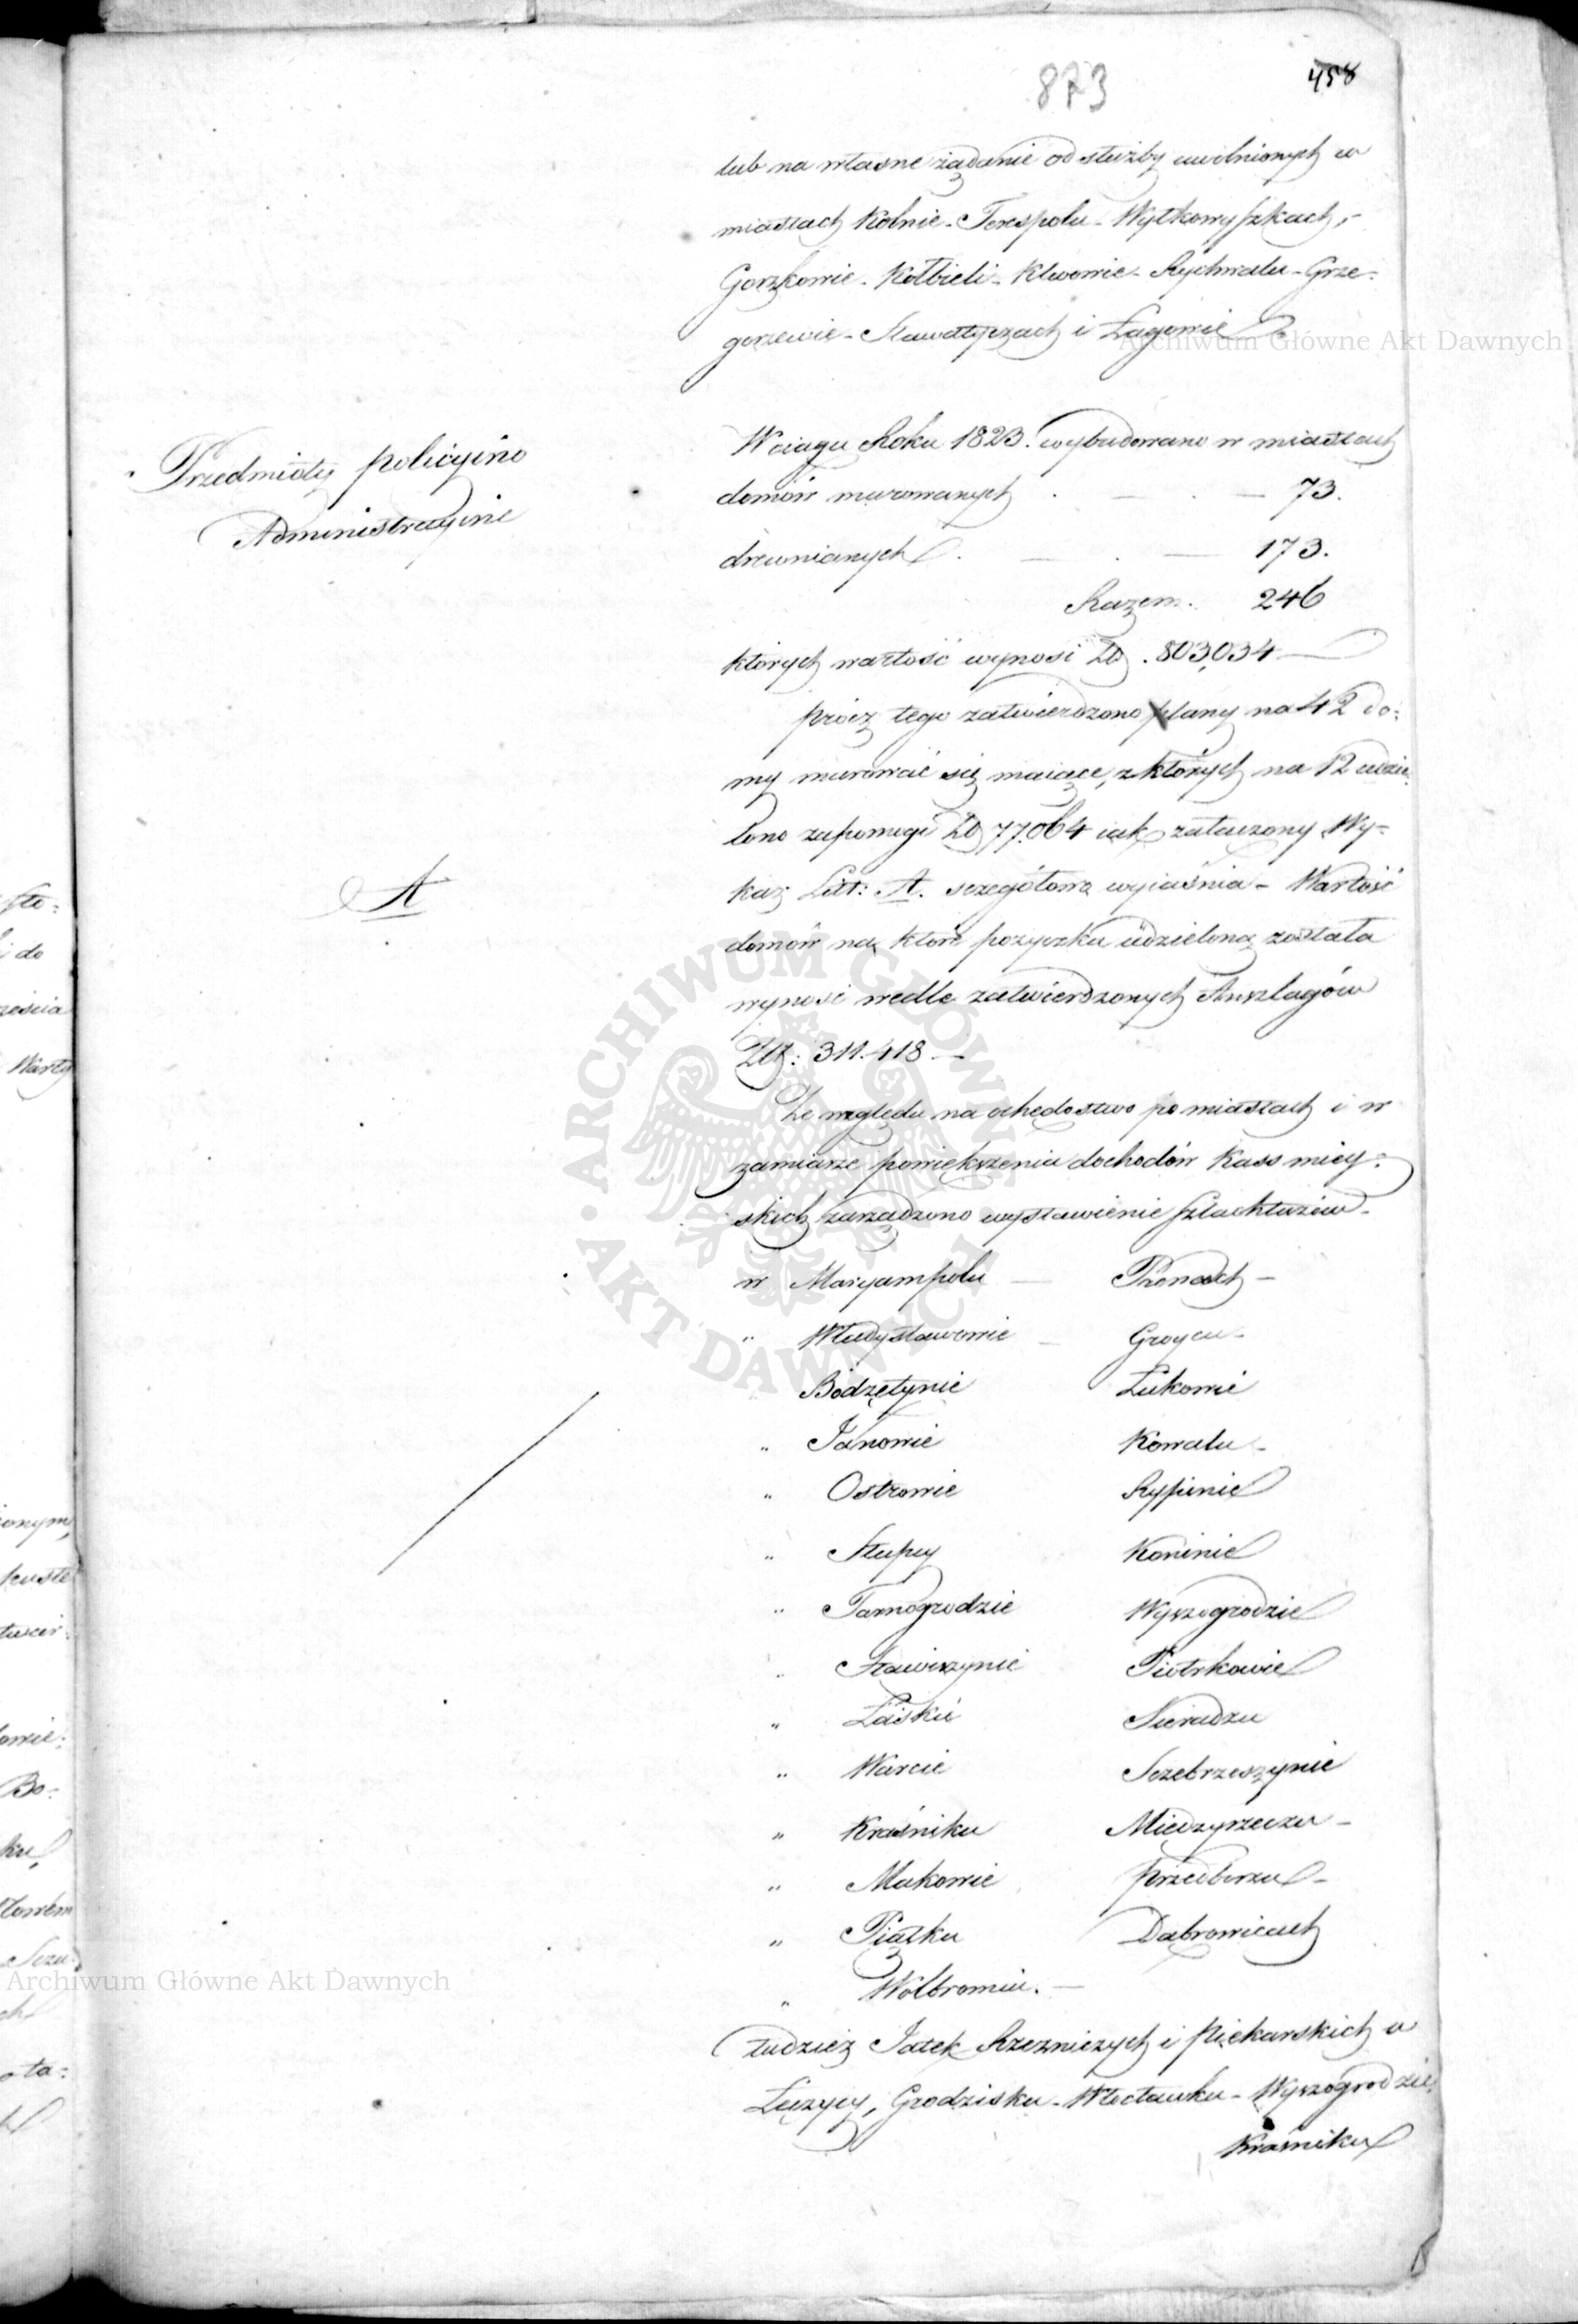 873
458
lub na własne żądanie od służby uwolnionych w
miastach Kolnie - Terespolu - Wyłkowyszkach, -
Gorzkowie - Kołbieli - Klwowie - Rychwalu - Grze-
gorzewie - Sławatyczach i Łagowie
Przedmioty policyino
Administracyine
W ciągu Roku 1823. wybudowano w miastach
domów murowanych . — . — 73.
drewnianych . — . — 173.
Razem. 246
których wartość wynosi Zł. 803,034 —
prócz tego zatwierdzono plany na 42 do-
my murować się maiące, z których na 12 udzie-
lono zapomogi Zł 77.064 iak załączony Wy-
A
kaz Litt: A. sczegółowo wyiaśnia - Wartość
domów na które pożyczka udzieloną została
wynosi wedle zatwierdzonych Anszlagów
Złt: 311.418 —
Ze względu na ochędostwo po miastach i w
zamiarze powiększenia dochodów Kass miey-
skich zarządzono wystawienie szlachtuzów -
w Maryampolu — Prenach —
" Władysławowie — Groycu -
Bodzętynie Łukowie
" Janowie Kowalu -
" Ostrowie Rypinie
" Słupcy Koninie
" Tarnogrodzie Wyszogrodzie
" Stawiszynie Piotrkowie
" Łasku Sieradzu
" Warcie Sczebrzeszynie
" Kraśniku Miedzyrzeczu -
" Makowie Przedborzu -
" Piątku Dąbrowicach
" Wolbromiu. —
tudzież Jatek Rzezniczych i Piekarskich w
Łęczycy, Grodzisku - Włocławku - Wyszogrodzie,
Kraśniku
Archiwum Główne Akt Dawnych
ARCHIWUM GŁÓWNE · AKT DAWNYCH ·
Archiwum Główne Akt Dawnych